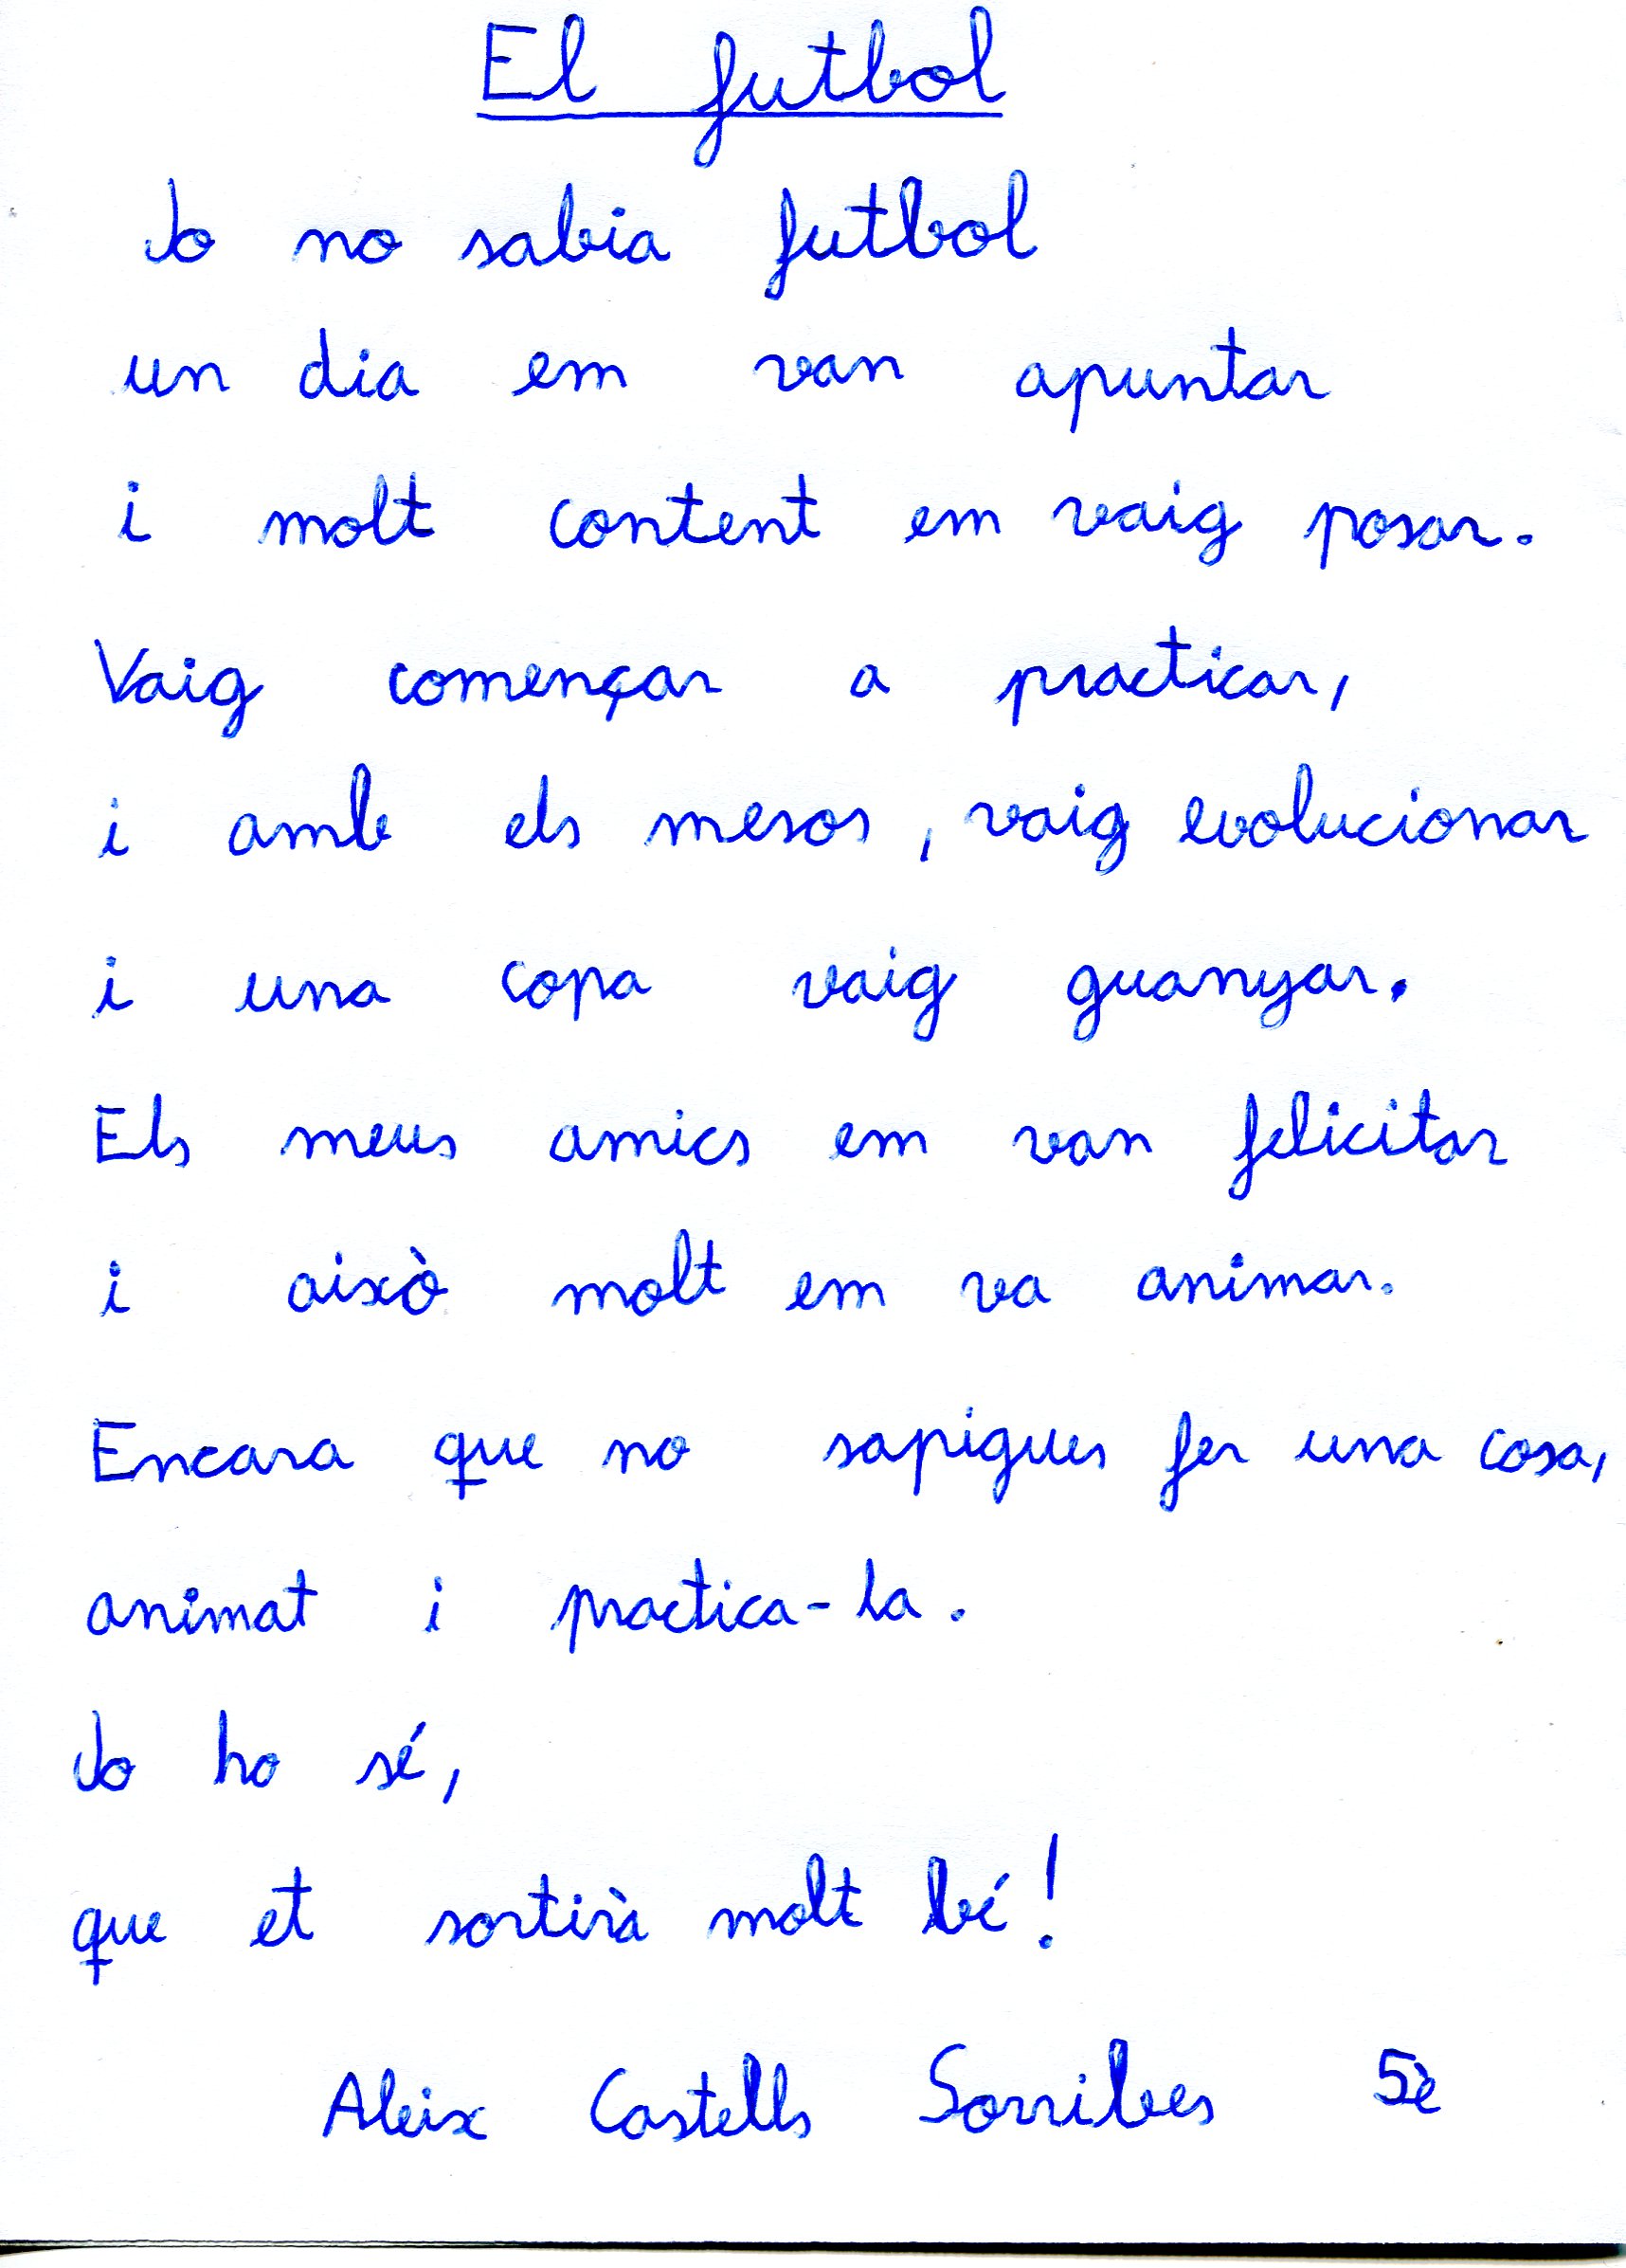 El futbol
Jo no sabia futbol
un dia em van apuntar
i molt content em vaig posar.
Vaig començar a practicar,
i amb els mesos, vaig evolucionar
i una copa vaig guanyar.
Els meus amics em van felicitar
i això molt em va animar.
Encara que no sapigues fer una cosa,
animat i practica-la.
Jo ho sé,
que et sortirà molt bé!
Aleix Castells Sorribes 5è